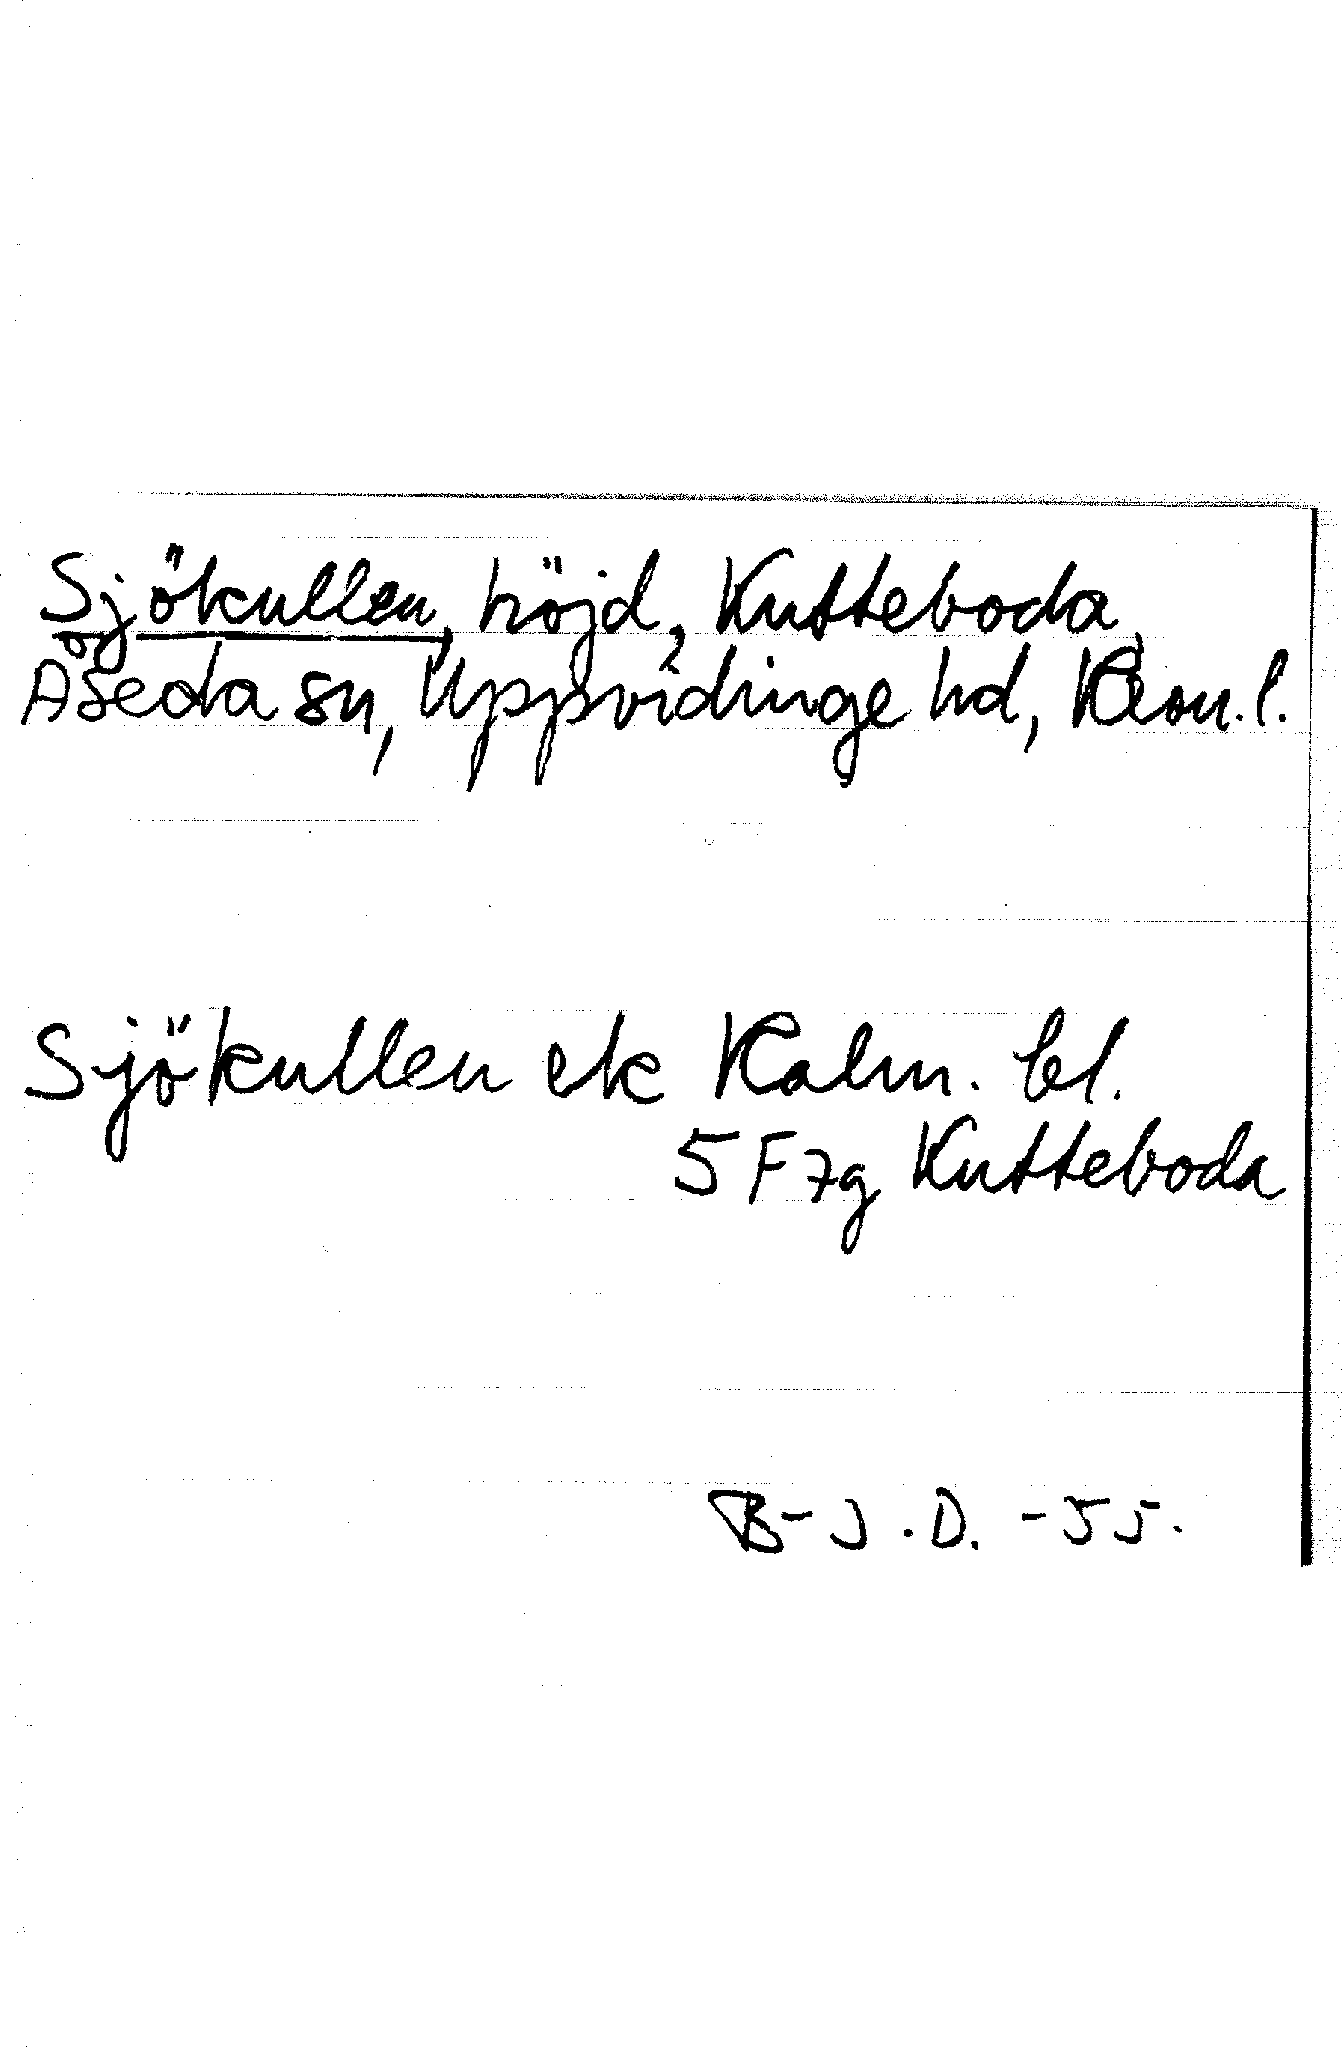 Sjökullen, höjd, Kutteboda,
Åseda sn, Uppvidinge hd, Kron.l.
Sjökullen ek Kalm. bl.
5 F 7g Kutteboda
B-J.D. -55.